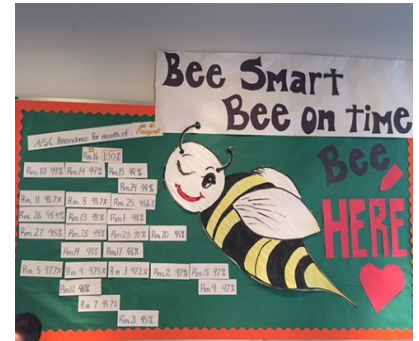 Bee Smart
Bee on time
Bee
HERE
ASC Attendance for month of August
Rm 16 100%
Rm 10 99% Rm 14 99% Rm 15 99%
Rm 24 99%
Rm 11 98.7% Rm 8 98.7% Rm 25
Rm 26 Rm 13 98% Rm 1 98%
Rm 27 98% Rm 23 Rm 20 98%
Rm 19 98% Rm 17 98%
Rm 5 97.7% Rm 4 97.5% Rm 3 97.2% Rm 2 97% Rm 18 97%
Rm 12 96% Rm 9 97%
Rm 7 95.7%
Rm 21 95%